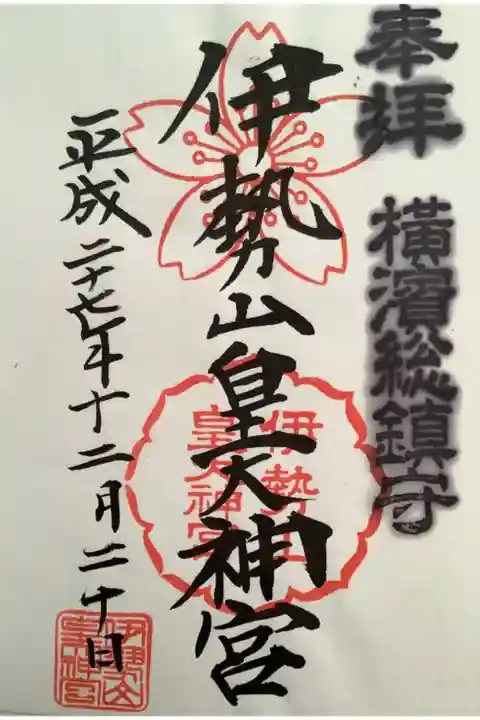 奉拝 横濱総鎮守
伊勢山皇大神宮
伊勢山
皇大神宮
平成二十七年十二月二十日
伊勢山
皇神宮